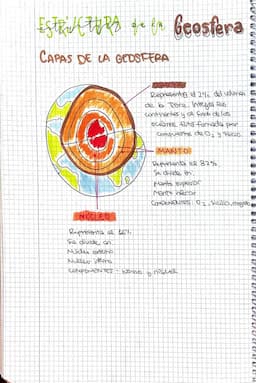 ESTRUCTURA de la Geosfera
CAPAS DE LA GEOSFERA
CORTEZA
Representa el 2% del volumen
de la Tierra. Integra los
continentes y el fondo de los
océanos. Está formada por
compuestos de O2 y Silicio.
MANTO
Representa el 82%
Se divide en:
Manto superior
Manto inferior
COMPONENTES: O2, silicio, magnesio
NÚCLEO
Representa el 16%
Se divide en:
Núcleo externo
Núcleo interno
COMPONENTES: Hierro y níquel